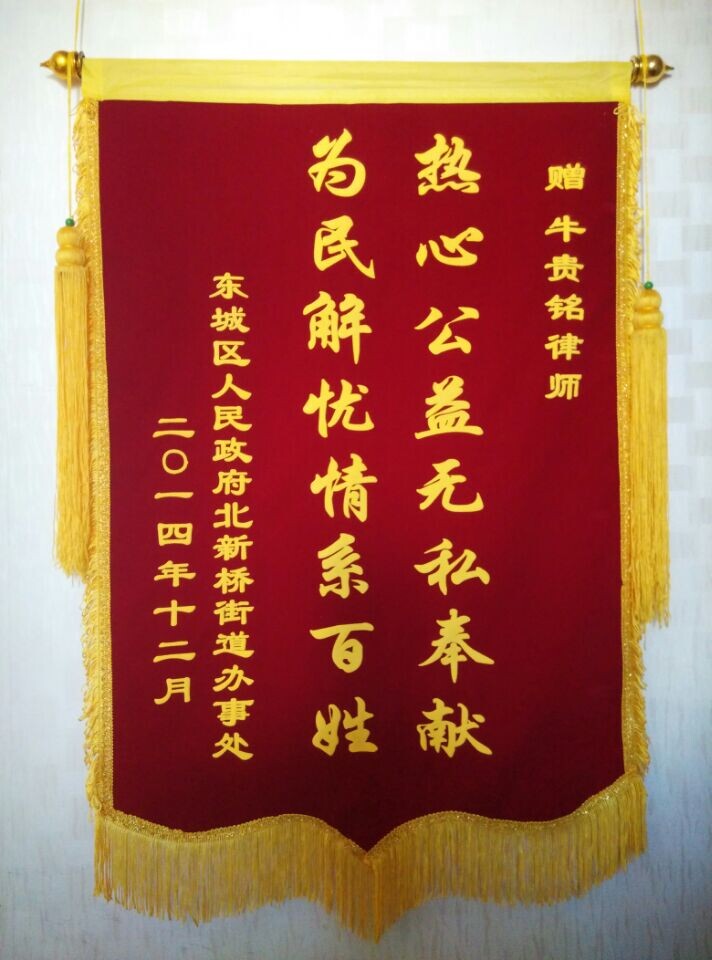 赠 牛贵铭律师
热心公益无私奉献
为民解忧情系百姓
东城区人民政府北新桥街道办事处
二〇一四年十二月